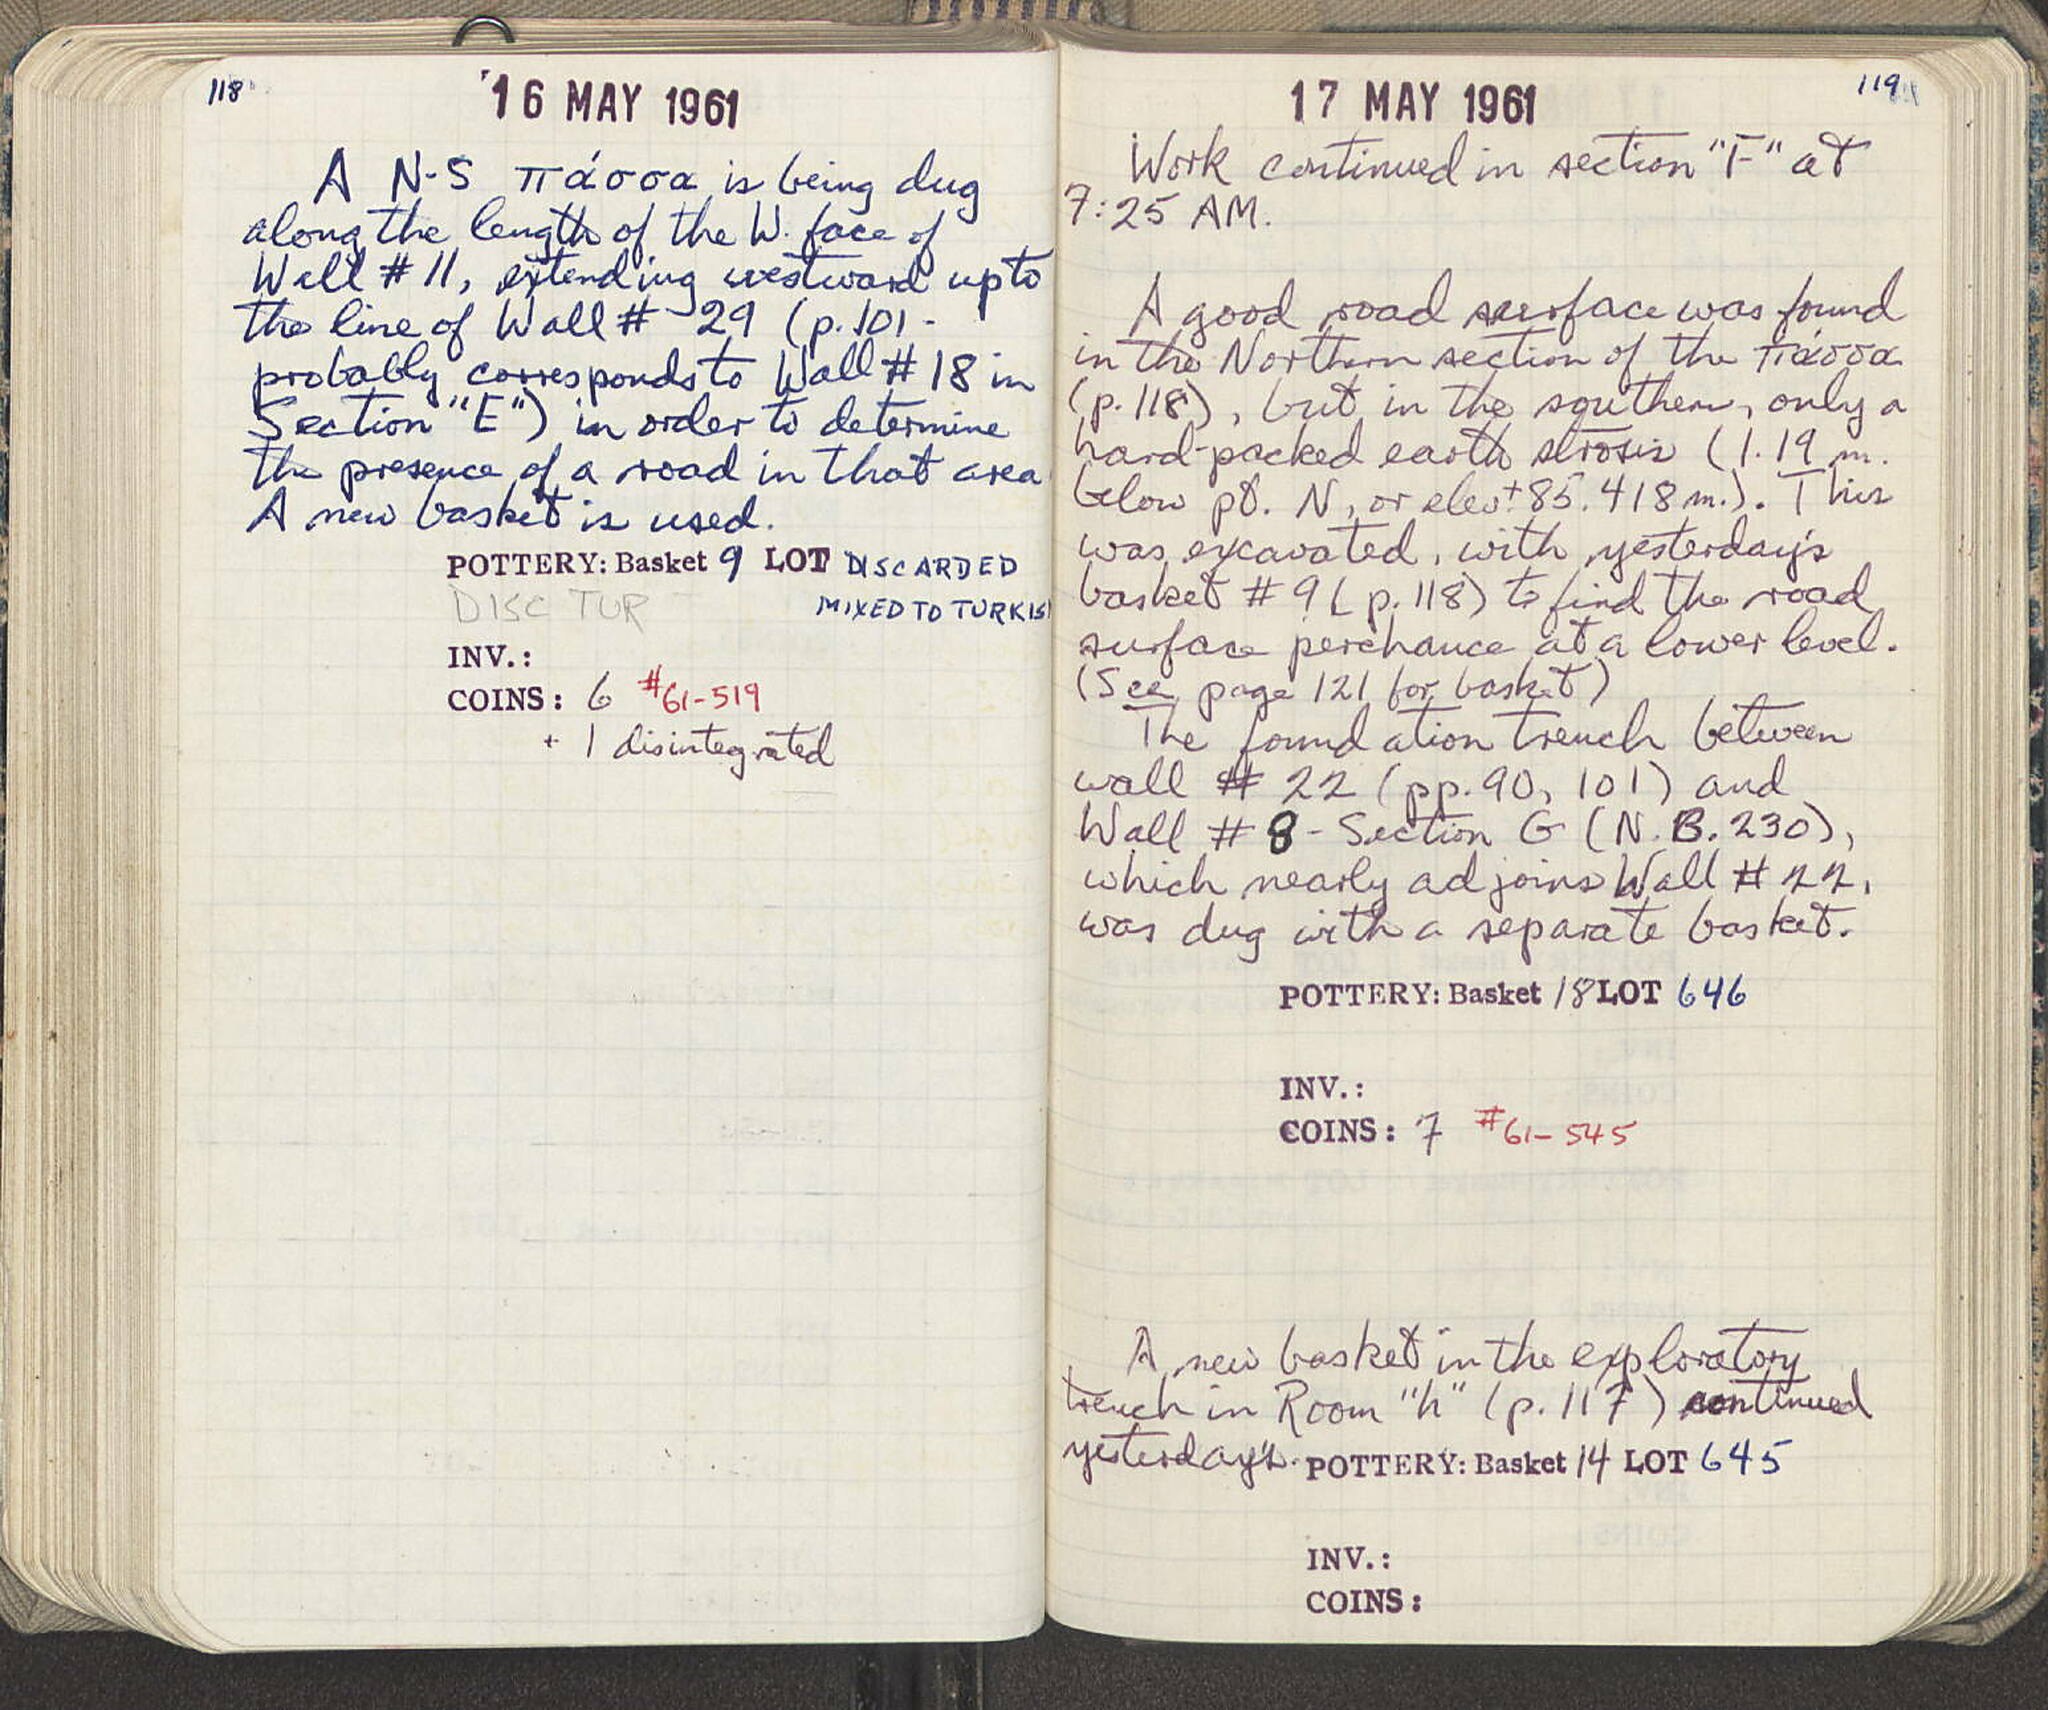 118
16 MAY 1961
A N-S πάσσα is being dug
along the length of the W. face of
Wall # 11, extending westward up to
the line of Wall # 29 (p. 101 -
probably corresponds to Wall # 18 in
Section "E") in order to determine
the presence of a road in that area
A new basket is used.
POTTERY: Basket 9 LOT DISCARDED
DISC TUR MIXED TO TURKISH
INV.:
COINS: 6 #61-519
+ 1 disintegrated
119
17 MAY 1961
Work continued in section "F" at
7:25 AM.
A good road surface was found
in the Northern section of the πάσσα
(p. 118), but in the southern, only a
hard-packed earth strosis (1.19 m.
below pt. N, or elev. + 85.418 m.). This
was excavated, with yesterday's
basket # 9 (p. 118) to find the road
surface perchance at a lower level.
(See page 121 for basket)
The foundation trench between
wall # 22 (pp. 90, 101) and
Wall # 8 - Section G (N.B. 230),
which nearly adjoins Wall # 22,
was dug with a separate basket.
POTTERY: Basket 18 LOT 646
INV.:
COINS: 7 #61-545
A new basket in the exploratory
trench in Room "h" (p. 117) continued
yesterday's. POTTERY: Basket 14 LOT 645
INV.:
COINS: